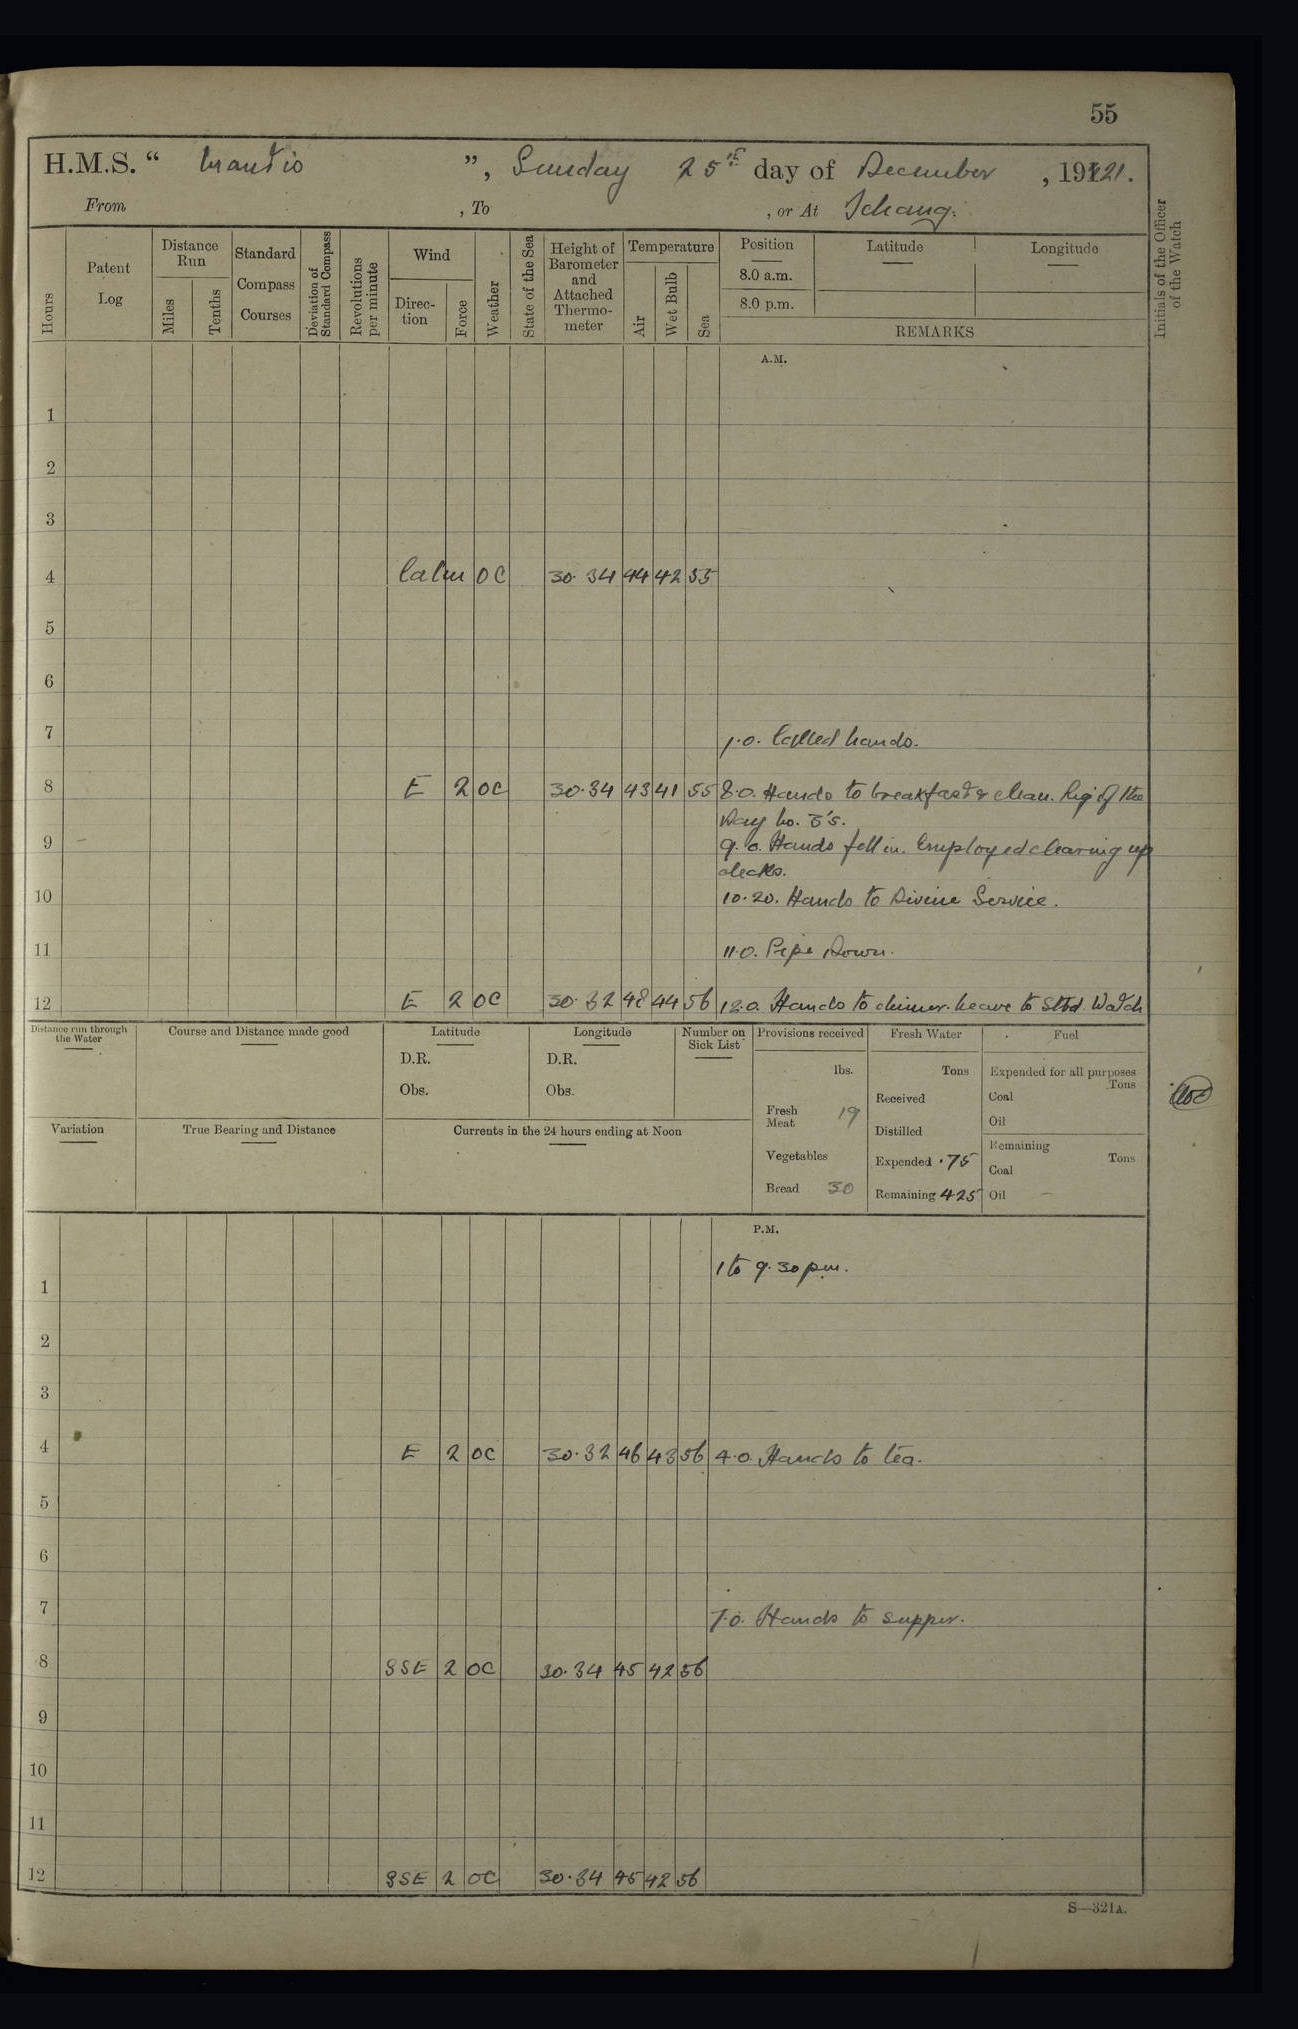 55
H.M.S. “ Mantis ”, Sunday 25th day of December, 1921.
From , To , or At Ichang.
Hours
Patent Log
Distance Run
Miles
Tenths
Standard Compass Courses
Deviation of Standard Compass
Revolutions per minute
Wind
Direction
Force
Weather
State of the Sea
Height of Barometer and Attached Thermometer
Temperature
Air
Wet Bulb
Sea
Position
8.0 a.m.
8.0 p.m.
Latitude
Longitude
REMARKS
Initials of the Officer of the Watch
A.M.
1
2
3
4 Calm OC 30.34 44 42 55
5
6
7 7.0. Called hands.
8 E 2 OC 30.34 43 41 55 8.0. Hands to breakfast & clean. Rig of the
Day No. 3's.
9 9.0. Hands fell in. Employed clearing up
decks.
10 10.20. Hands to Divine Service.
11 11.0. Pipe Down.
12 E 2 OC 30.32 48 44 56 12.0. Hands to dinner. Leave to Stbd. Watch
Distance run through the Water
Course and Distance made good
Latitude
D.R.
Obs.
Longitude
D.R.
Obs.
Number on Sick List
Provisions received
lbs.
Fresh Meat 19
Vegetables
Bread 30
Fresh Water
Tons
Received
Distilled
Expended .75
Remaining 4.25
Fuel
Expended for all purposes
Tons
Coal
Oil
Remaining
Tons
Coal
Oil –
Variation
True Bearing and Distance
Currents in the 24 hours ending at Noon
P.M.
1 to 9.30 p.m.
1
2
3
4 E 2 OC 30.32 46 43 56 4.0. Hands to tea.
5
6
7 7.0. Hands to supper.
8 SSE 2 OC 30.34 45 42 56
9
10
11
12 SSE 2 OC 30.34 45 42 56
S—321A.